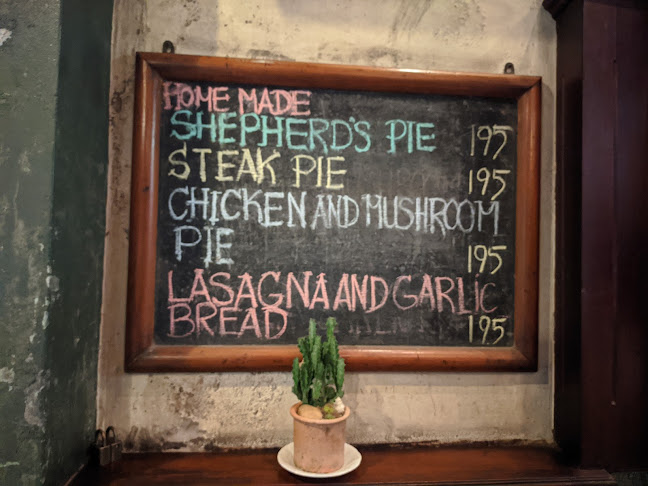 HOME MADE
SHEPHERD'S PIE 195
STEAK PIE 195
CHICKEN AND MUSHROOM
PIE 195
LASAGNA AND GARLIC
BREAD 195